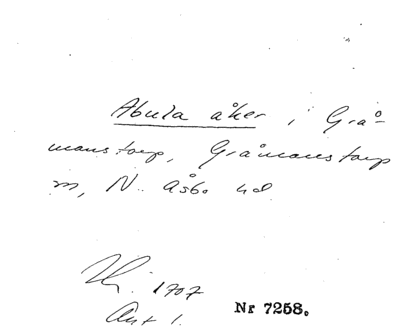 Abula åker i Grå-
manstorp, Gråmanstorp
sn, N. Åsbo hd
1707
Ant 1.
Nr 7258.